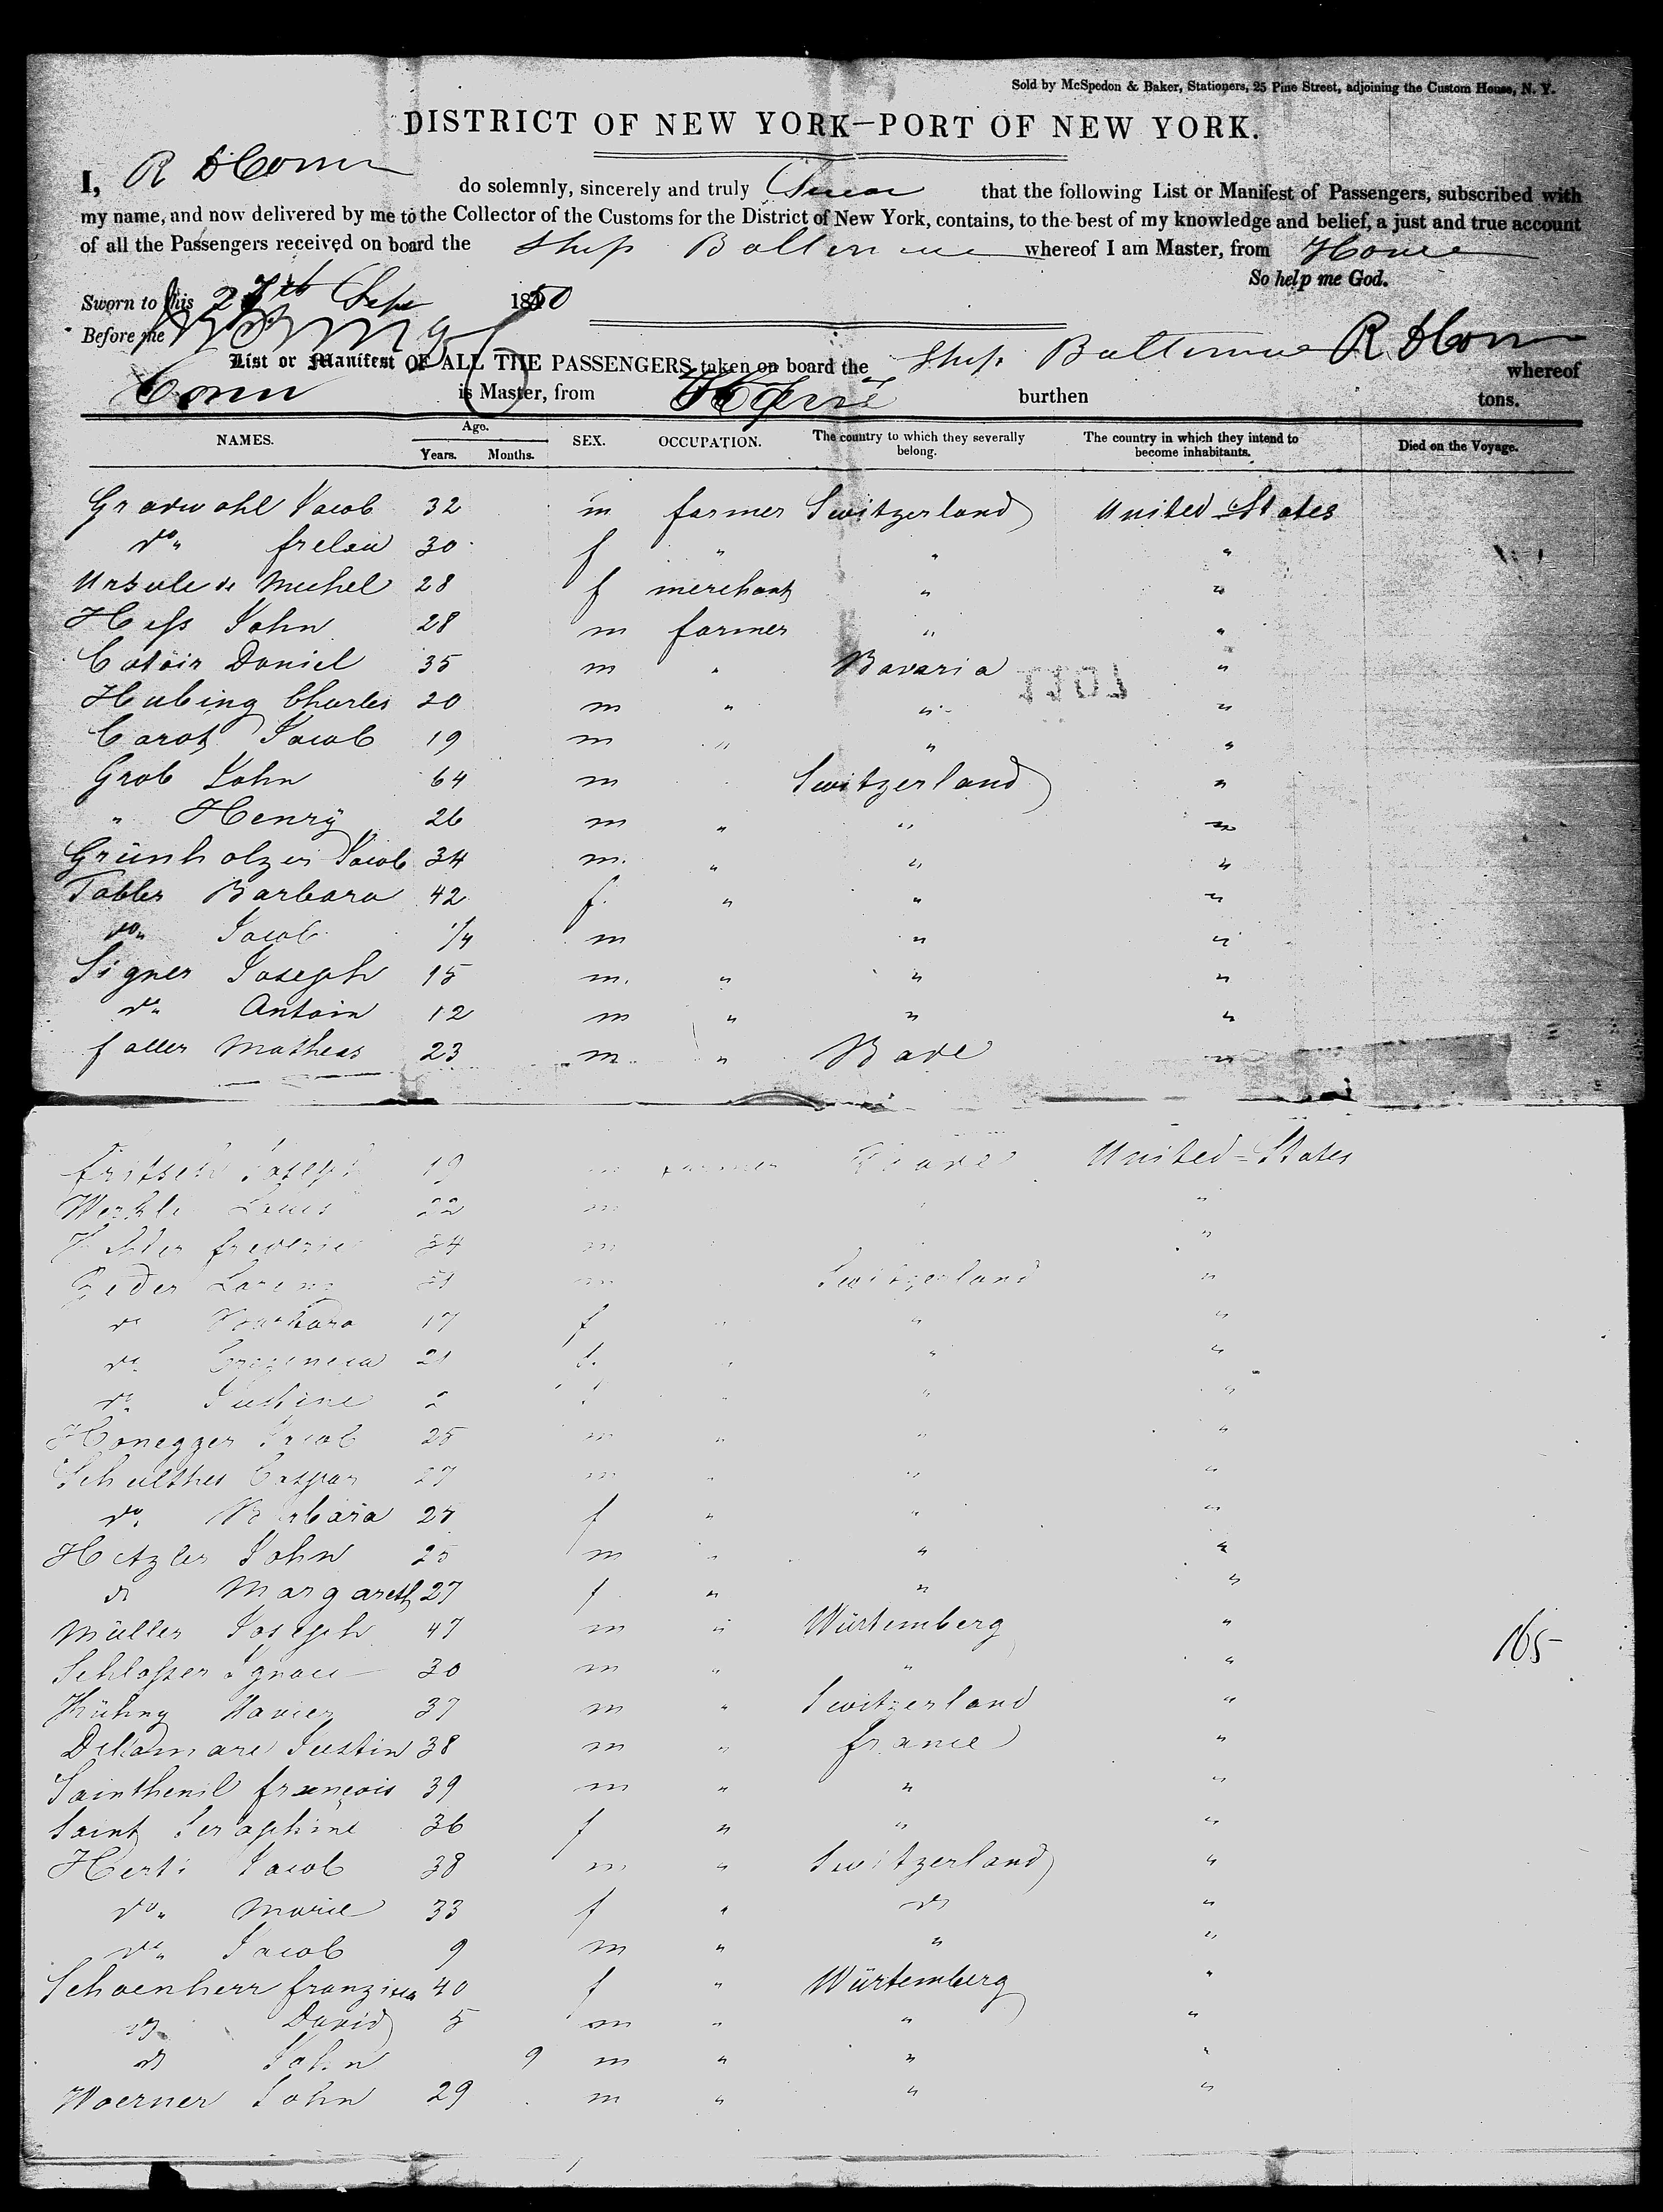 Sold by McSpedon & Baker, Stationers, 25 Pine Street, adjoining the Custom House, N. Y.
DISTRICT OF NEW YORK—PORT OF NEW YORK.
I, R D Conn do solemnly, sincerely and truly Swear that the following List or Manifest of Passengers, subscribed with
my name, and now delivered by me to the Collector of the Customs for the District of New York, contains, to the best of my knowledge and belief, a just and true account
of all the Passengers received on board the Ship Baltimore whereof I am Master, from Havre
So help me God.
Sworn to this 27th Sep 1850
Before me
R D Conn
List or Manifest OF ALL THE PASSENGERS taken on board the Ship Baltimore whereof
Conn is Master, from Havre burthen tons.
NAMES. Age. Years. Months. SEX. OCCUPATION. The country to which they severally belong. The country in which they intend to become inhabitants. Died on the Voyage.
Gradwohl Jacob 32 m farmer Switzerland United States
do " 30 f " " "
Ursule de Michel 28 f merchant " "
Hess John 28 m farmer " "
Catoir Daniel 35 m " Bavaria "
Hubing Charles 20 m " " "
Carot Jacob 19 m " " "
Grob John 64 m Switzerland "
" Henry 26 m " " "
Grünholzer Jacob 34 m. " " "
Tobler Barbara 42 f. " " "
do " Jacob 1/4 m " "
Signer Joseph 15 m. " " "
do " Antoin 12 m " " "
faller Matheas 23 m. " Bade "
fritsch Joseph 19 m farmer Bade United=States
Louis 22 m "
frederic 34 m "
Geder Lorenz m Switzerland "
do Barbara 17 f " "
do 21 f. " "
do Justine 2 " "
Honegger Jacob 25 m " " "
Schulthes Caspar 27 m " " "
do. Barbara 25 f " " "
Hetzler John 25 m " " "
do Margareth 27 f " " "
Müller Joseph 47 m " Würtemberg "
Schlosser Ignace 30 m " " "
Kühny Xavier 37 m " Switzerland "
Delamare Justin 38 m " france "
Sainthenil françois 39 m " " "
Saint Seraphine 36 f " " "
Herti Jacob 38 m " Switzerland "
do " Marie 33 f " do "
do " Jacob 9 m " " "
Schoenherr franzisca 40 f " Würtemberg "
do David 5 m " " "
do John 9 m " " "
Woerner John 29 m " " "
165